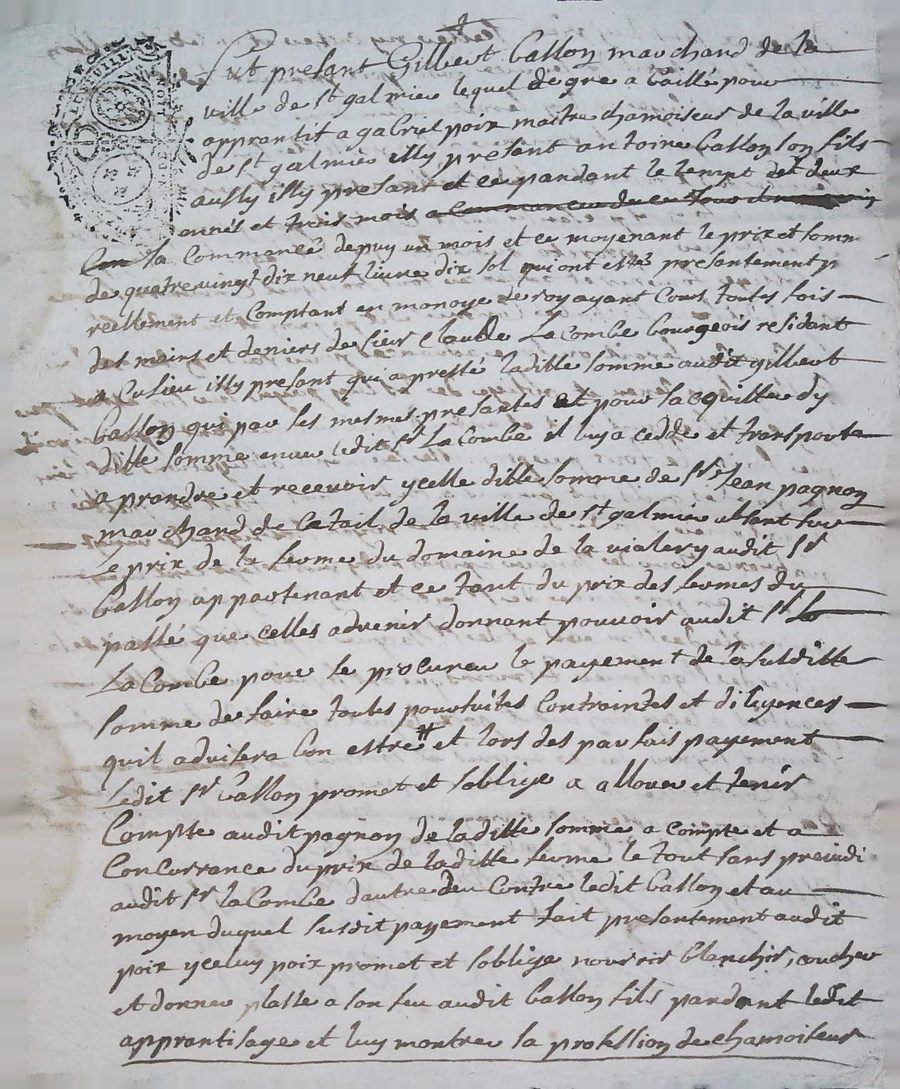 fut presant Gilbert ballon marchand de la
ville de st galmie lequel de gre a baillé pour
apprantif a gabriel poix maitre chamoiseur de la ville
de st galmie illy présent antoine ballon son fils
aussy illy presant et ce pandant le temps de deux
annés et trois mois
la commancé depuy un mois et ce moyenant le prix et somm
de quatre vingt dix neuf livre dix sol qui ont estés presantement
reellement et comptant en monoye de roy ayant cours toutes fois
des mains et deniers de sieur Claude La Combe bourgeois residant
a Cusieu illy presant qui a presté laditte somme audit gilbert
ballon qui par les mesmes presantes et pour lacquitter dy
ditte somme enver ledit sr La Combe il luy a cedde et transporte
a prandre et recevoir ycelle ditte somme de sr Jean pagnon
marchand de la ville de st galmie
le prix de la ferme du domaine de la vialery audit sr
ballon appartenant et ce tant du prix des fermes du
passé que celles advenir donnant pouvoir audit sr
La Combe pour se procurer le payement de la susditte
somme de faire toutes poursuites contraintes et diligences
quil advisera bon estre et lors des par fais payement
Ledit sr ballon promet et soblige a allouer et tenir
Compte audit pagnon de laditte somme a compte et a
Concurrance du prix de laditte ferme le tout sans preiudi
audit sr la Combe dautre deu contre ledit ballon et au
moyen duquel susdit payement fait presantement audit
poix yceluy poix promet et soblige nourrir blanchir, coucher
et donner plasse a son feu audit ballon fils pandant ledit
apprantisage et luy montrer la profession de chamoiseur